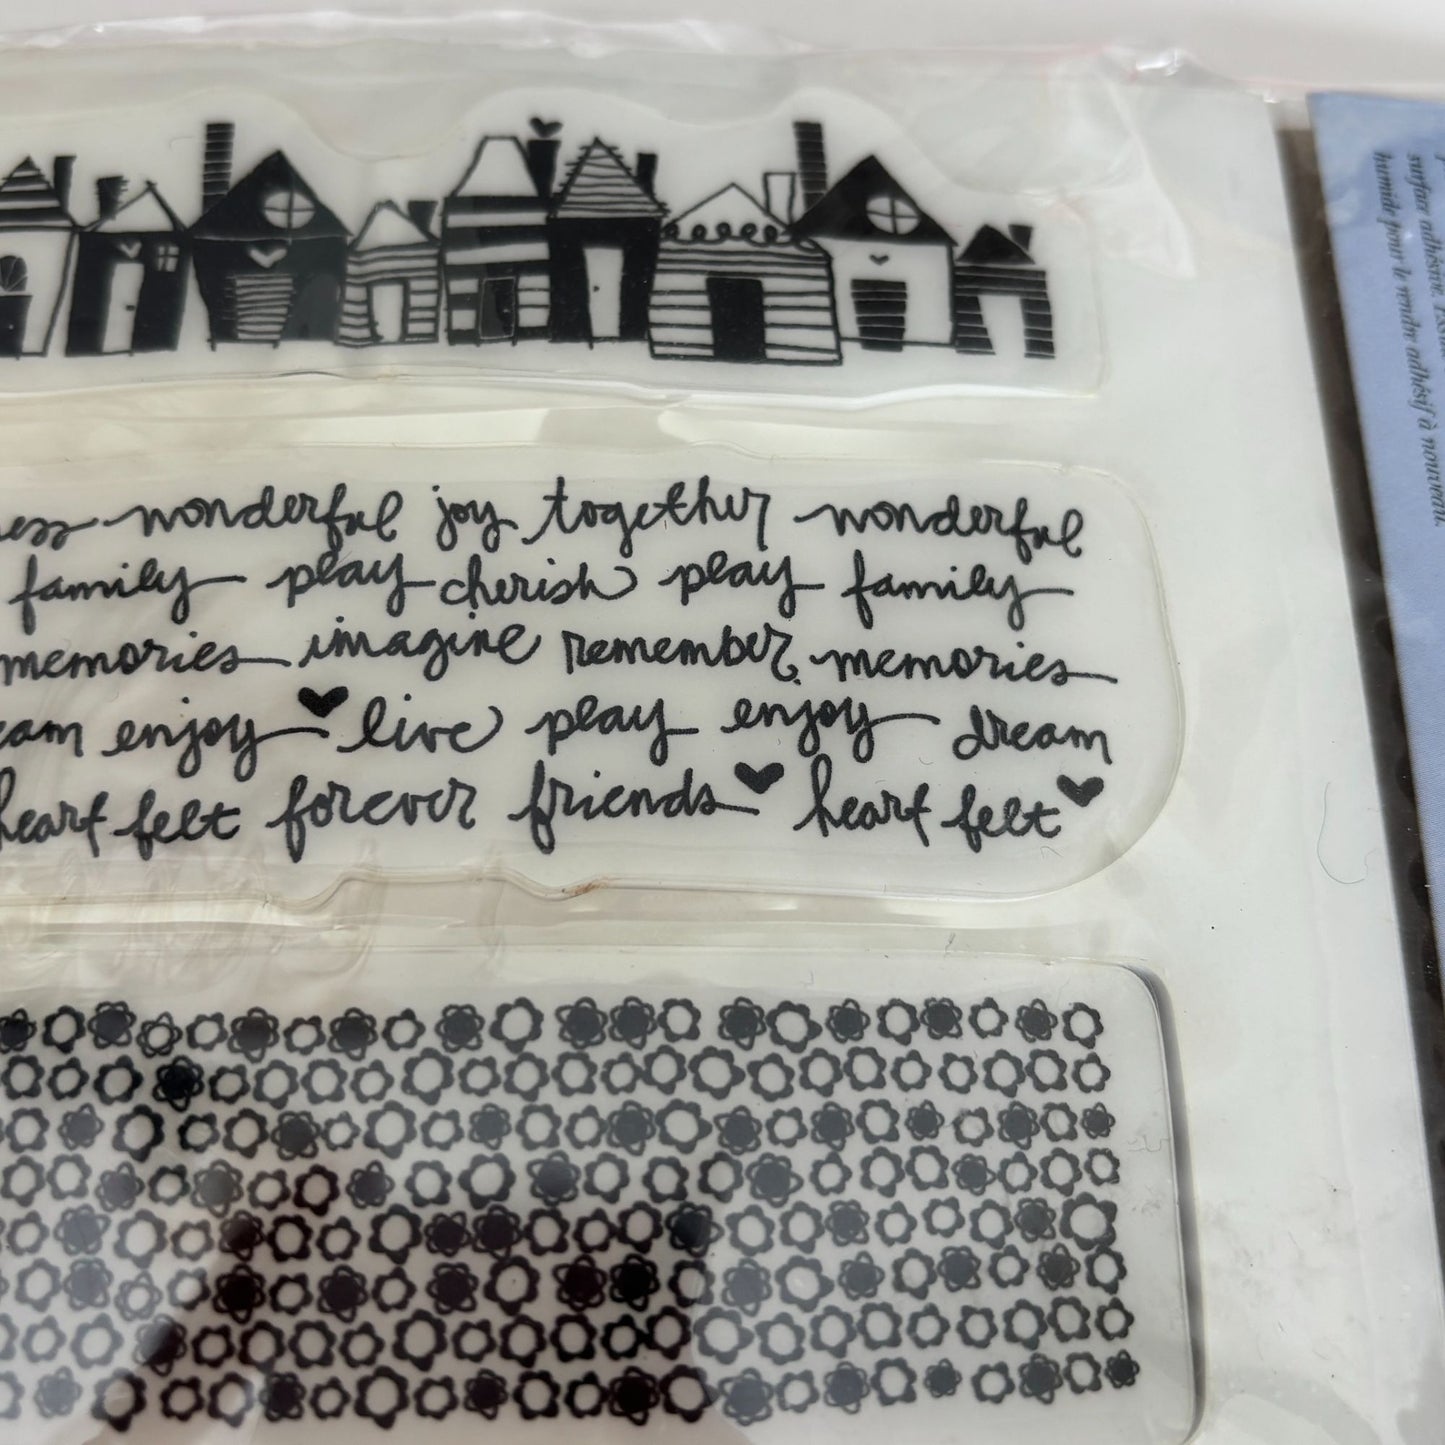 wonderful joy together wonderful
family play cherish play family
memories imagine remember memories
enjoy live play enjoy dream
heart felt forever friends heart felt
surface adhésive.
humide pour le rendre adhésif à nouveau.